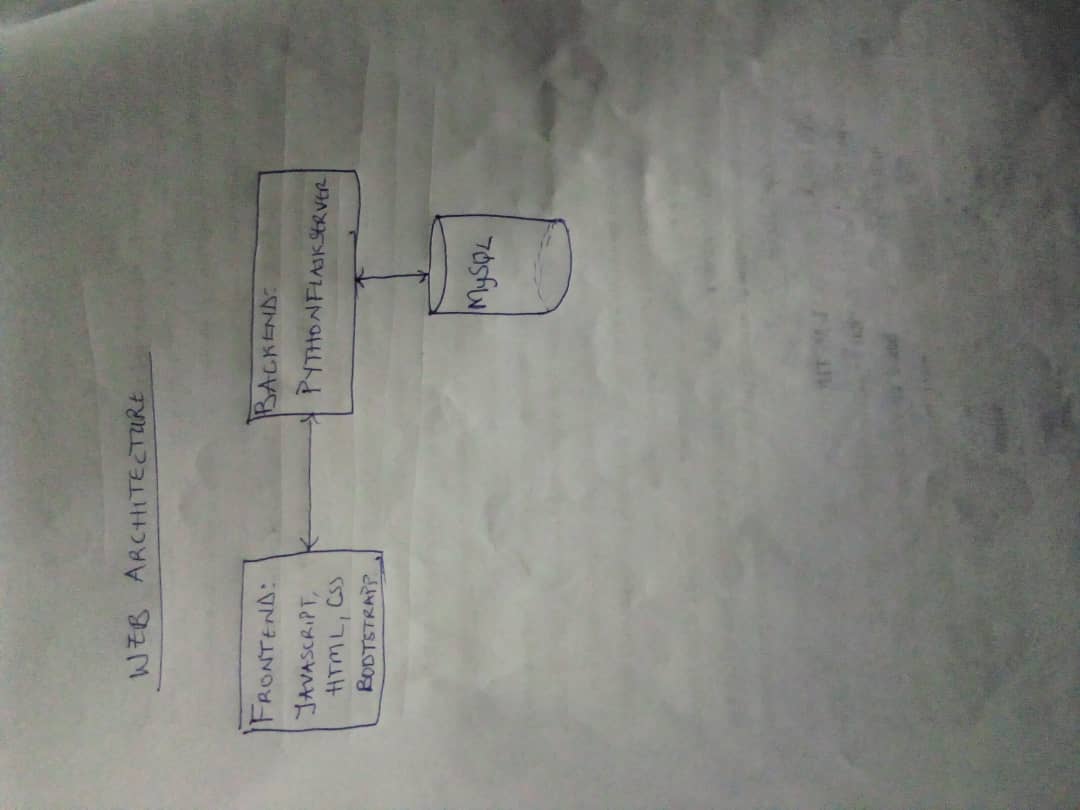 WEB ARCHITECTURE
FRONTEND:
JAVASCRIPT,
HTML, CSS
BOOTSTRAPP
BACKEND:
PYTHON FLASK SERVER
MySQL